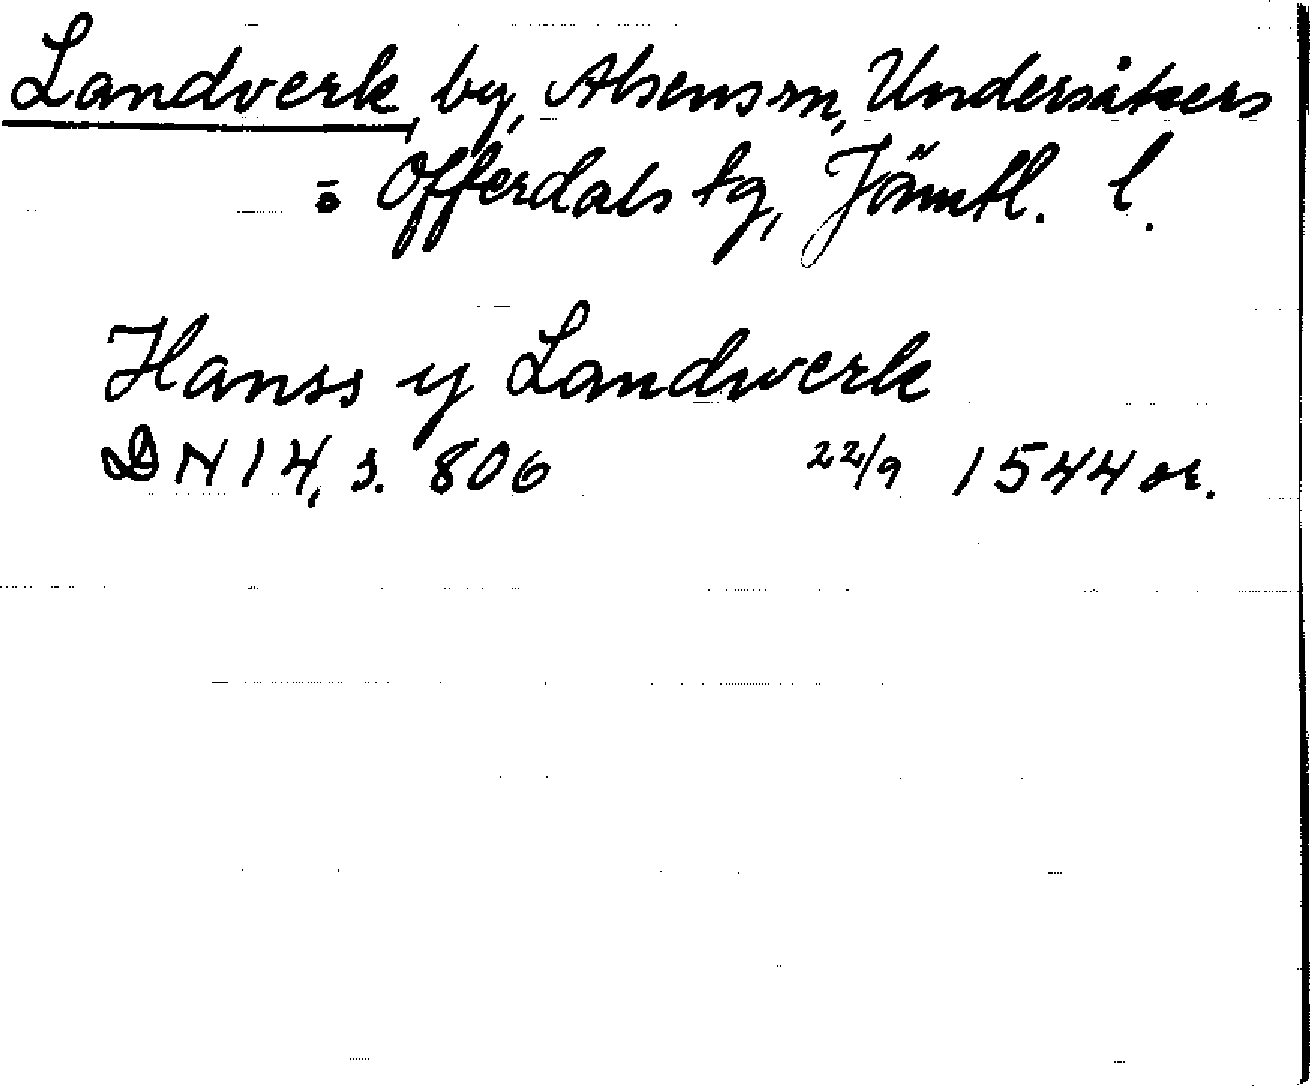 Landverk, by, Alsens sn, Undersåkers
o Offerdals tg, Jämtl. l.
Hanss y Landwerk
DN 14, s. 806 22/9 1544 or.